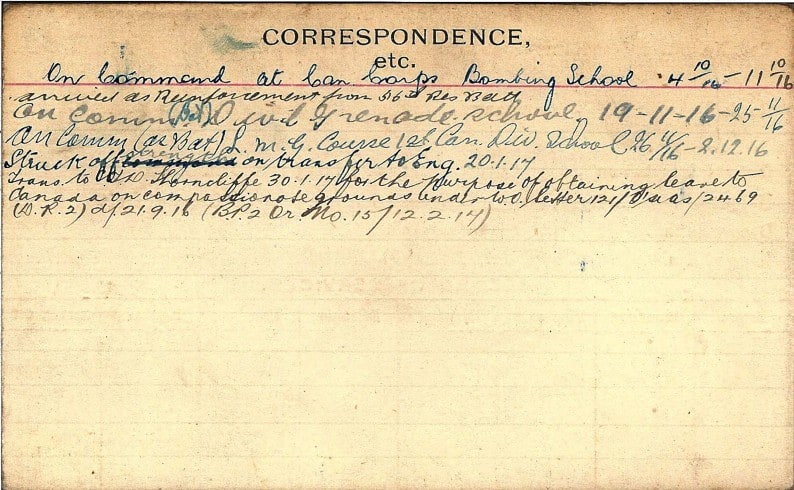 CORRESPONDENCE,
etc.
On Command at Can Corps Bombing School 4 10/16 - 11 10/16
arrived as Reinforcement from 56th Res Batt
On comm (Bat) Divl Grenade school, 19-11-16-25 11/16
On Comm (as Bat) L. M. G. Course 1st Can. Div. School 26 11/16-2.12.16
Struck off on transfer to Eng. 20.1.17
Trans. to C.D.D. Shorncliffe 30.1.17 for the purpose of obtaining leave to
Canada on compassionate grounds under W.O. letter 121/Overseas/2469
(D.R.2) d/21.9.16 (B.P.2 Or. No. 15/12.2.17)